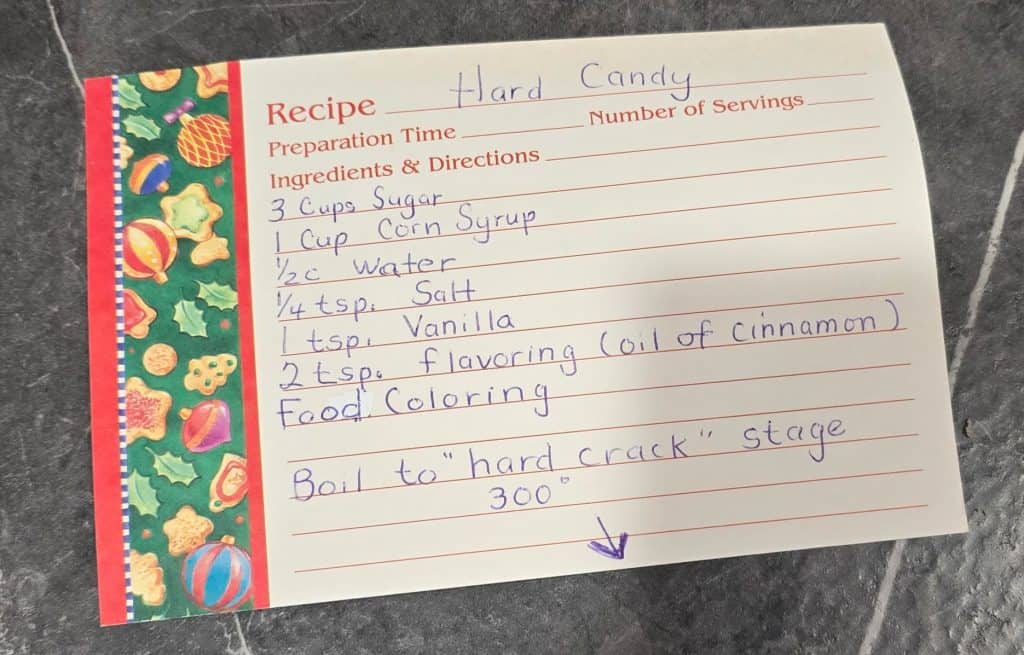 Recipe Hard Candy
Preparation Time Number of Servings
Ingredients & Directions
3 Cups Sugar
1 Cup Corn Syrup
1/2 c Water
1/4 tsp. Salt
1 tsp. Vanilla
2 tsp. flavoring (oil of cinnamon)
Food Coloring
Boil to "hard crack" stage
300°